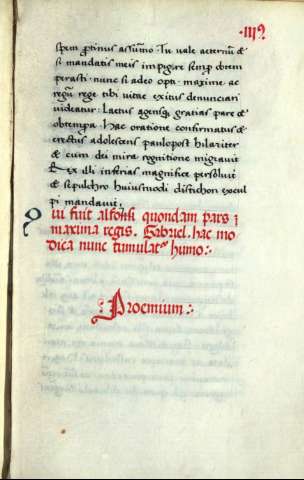 ·III?
spem protinus assumo. Tu vale aeternum &
si mandatis meis impigre semper obtem
perasti · nunc si adeo opti · maxime ac
regum rege tibi vitae exitus denunciari
videatur: Laetus agensq; gratias pare &
obtempera. Hac oratione confirmatus &
erectus adolescens paulopost hilariter
& cum dei mira cognitione migravit
Rex illi inferias magnifice persolvit
& sepulchro huiusmodi distichon exscul
pi mandavit.
Qui fuit alfonsi quondam pars
maxima regis. Gabriel. hac mo
dica nunc tumulatʳ humo:·
:Proemium:·